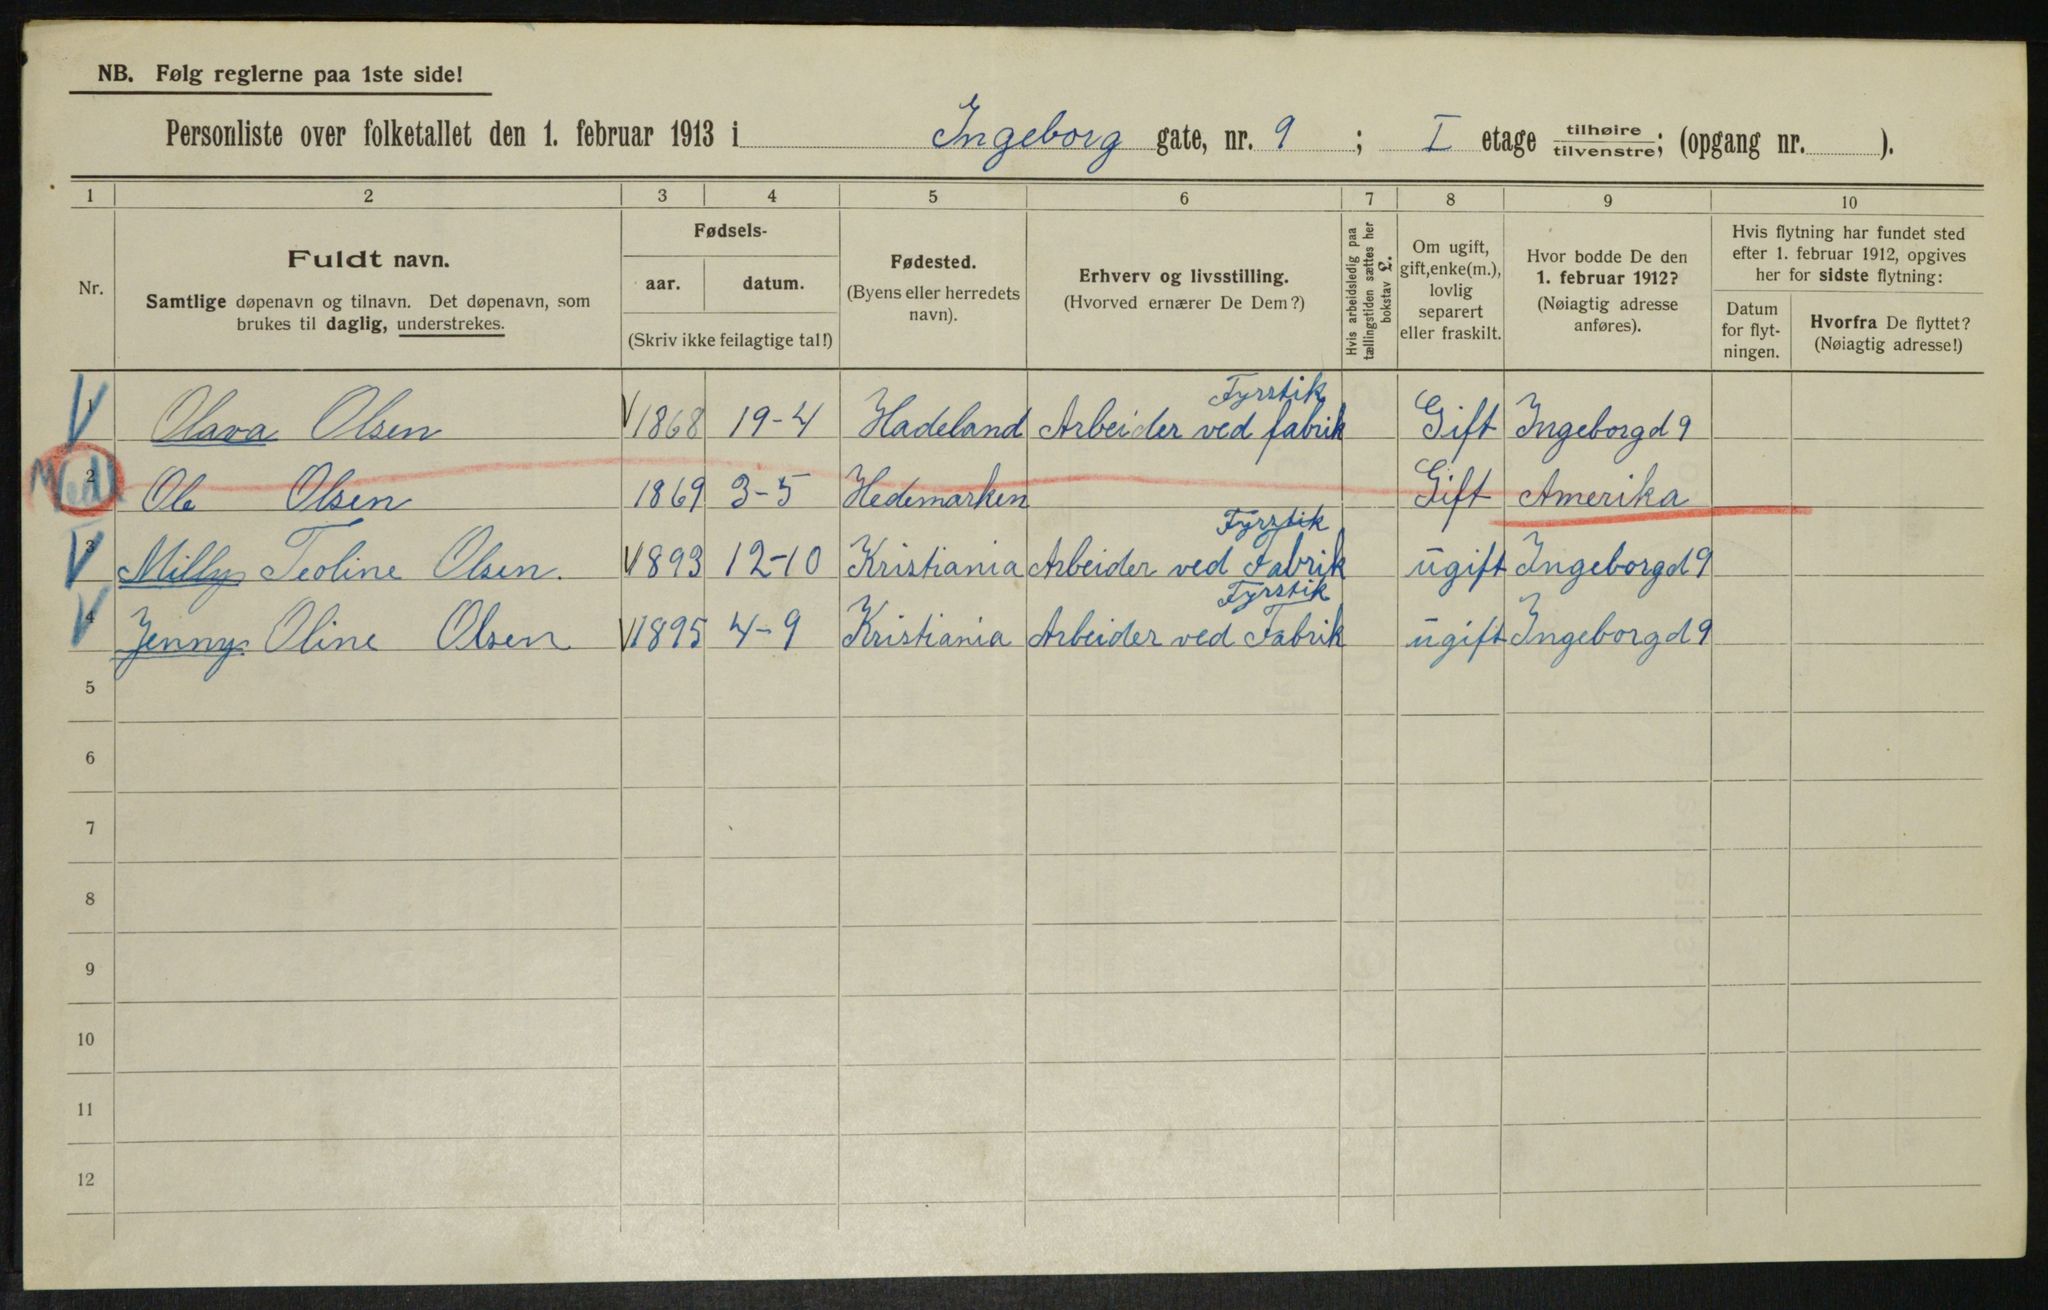 NB. Følg reglerne paa 1ste side!
Personliste over folketallet den 1. februar 1913 i Ingeborg gate, nr. 9 ; I etage tilhøire / tilvenstre; (opgang nr. ).
1 2 3 4 5 6 7 8 9 10
Nr.
Fuldt navn.
Samtlige døpenavn og tilnavn. Det døpenavn, som
brukes til daglig, understrekes.
Fødsels-
aar. datum.
(Skriv ikke feilagtige tal!)
Fødested.
(Byens eller herredets
navn).
Erhverv og livsstilling.
(Hvorved ernærer De Dem?)
Hvis arbeidsledig paa
tællingstiden sættes her
bokstav L.
Om ugift,
gift, enke(m.),
lovlig
separert
eller fraskilt.
Hvor bodde De den
1. februar 1912?
(Nøiagtig adresse
anføres).
Hvis flytning har fundet sted
efter 1. februar 1912, opgives
her for sidste flytning:
Datum
for flyt-
ningen.
Hvorfra De flyttet?
(Nøiagtig adresse!)
Fyrstik
1 Olava Olsen 1868 19-4 Hadeland Arbeider ved fabrik Gift Ingeborgd 9
2 Ole Olsen 1869 3-5 Hedemarken Gift Amerika
Fyrstik
3 Milly Teoline Olsen. 1893 12-10 Kristiania Arbeider ved Fabrik ugift Ingeborgd 9
Fyrstik
4 Jenny Oline Olsen 1895 4-9 Kristiania Arbeider ved Fabrik ugift Ingeborgd 9
5
6
7
8
9
10
11
12